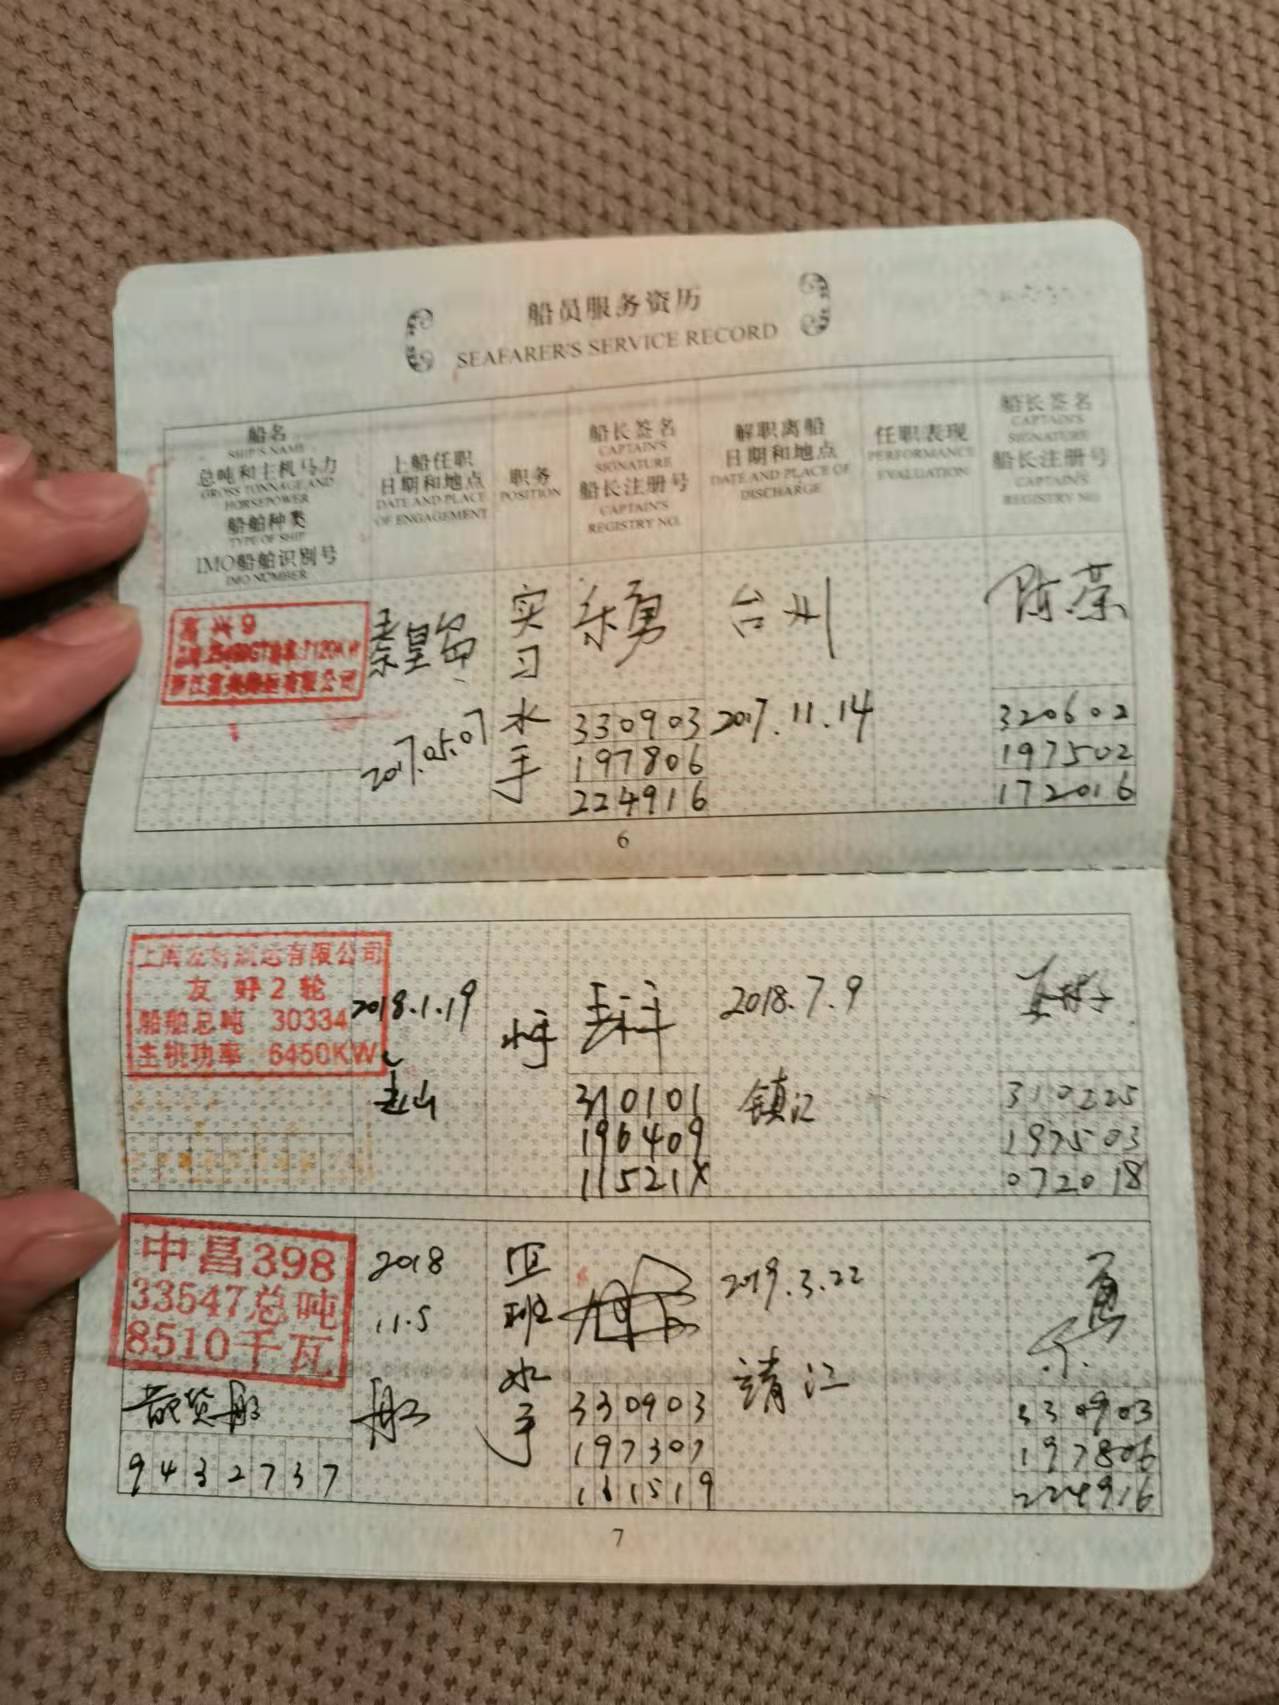 船员服务资历
SEAFARER'S SERVICE RECORD
船名
SHIP'S NAME
总吨和主机马力
GROSS TONNAGE AND
HORSEPOWER
船舶种类
TYPE OF SHIP
IMO船舶识别号
IMO NUMBER
上船任职
日期和地点
DATE AND PLACE
OF ENGAGEMENT
职务
POSITION
船长签名
CAPTAIN'S
SIGNATURE
船长注册号
CAPTAIN'S
REGISTRY NO.
解职离船
日期和地点
DATE AND PLACE OF
DISCHARGE
任职表现
PERFORMANCE
EVALUATION
船长签名
CAPTAIN'S
SIGNATURE
船长注册号
CAPTAIN'S
REGISTRY NO.
兴9
有限公司
秦皇岛
2017.05.07
实
习
水
手
330903
197806
224916
台州
2017.11.14
陈荣
320602
197502
172016
6
有限公司
友好2轮
船舶总吨 30334
主机功率 6450KW
2018.1.19
山
水手
310101
196409
11521X
2018.7.9
镇江
310225
197503
072018
中昌398
33547总吨
8510千瓦
散货船
9432737
2018
11.5
亚
班
水
手
330903
197307
161519
2019.3.22
靖江
330903
197806
224916
7